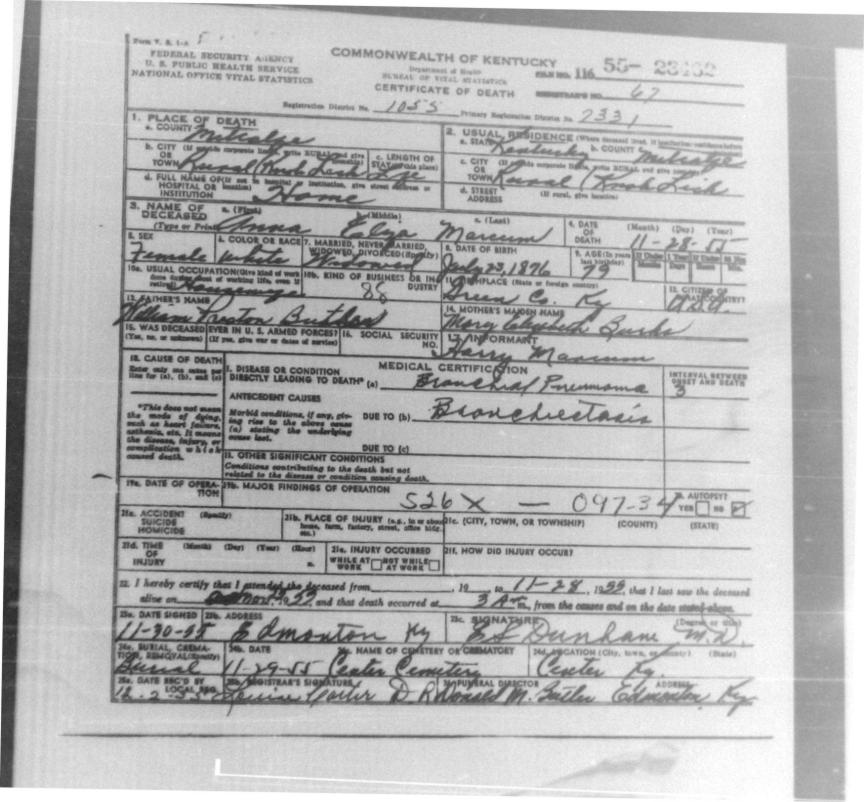 Form V. S. 1-A
FEDERAL SECURITY AGENCY
U. S. PUBLIC HEALTH SERVICE
NATIONAL OFFICE VITAL STATISTICS
COMMONWEALTH OF KENTUCKY
Department of Health
BUREAU OF VITAL STATISTICS
CERTIFICATE OF DEATH
FILE NO. 116 55-
REGISTRAR'S NO. 67
Registration District No. 1055 Primary Registration District No. 2331
1. PLACE OF DEATH
a. COUNTY Metcalfe
b. CITY OR TOWN Rural (Knob Lick
c. LENGTH OF STAY (in this place) Life
d. FULL NAME OF HOSPITAL OR INSTITUTION Home
2. USUAL RESIDENCE
a. STATE Kentucky b. COUNTY Metcalfe
c. CITY OR TOWN Rural (Knob Lick
d. STREET ADDRESS (If rural, give location)
3. NAME OF DECEASED (Type or Print)
a. (First) Anna b. (Middle) Eliza c. (Last) Marcum
4. DATE OF DEATH (Month) (Day) (Year) 11-28-55
5. SEX Female
6. COLOR OR RACE White
7. MARRIED, NEVER MARRIED, WIDOWED, DIVORCED (Specify) Widowed
8. DATE OF BIRTH July 23, 1876
9. AGE (In years last birthday) 79
10a. USUAL OCCUPATION (Give kind of work done during most of working life, even if retired) Housewife
10b. KIND OF BUSINESS OR INDUSTRY 88
11. BIRTHPLACE (State or foreign country) Green Co. Ky
12. CITIZEN OF WHAT COUNTRY? U.S.A.
13. FATHER'S NAME William Preston
14. MOTHER'S MAIDEN NAME Mary Elizabeth Burks
15. WAS DECEASED EVER IN U. S. ARMED FORCES? (Yes, no, or unknown) (If yes, give war or dates of service)
16. SOCIAL SECURITY NO.
17. INFORMANT Harry Marcum
18. CAUSE OF DEATH
Enter only one cause per line for (a), (b), and (c)
MEDICAL CERTIFICATION
INTERVAL BETWEEN ONSET AND DEATH
I. DISEASE OR CONDITION DIRECTLY LEADING TO DEATH* (a) Bronchial Pneumonia 3
*This does not mean the mode of dying, such as heart failure, asthenia, etc. It means the disease, injury, or complication which caused death.
ANTECEDENT CAUSES
Morbid conditions, if any, giving rise to the above cause (a) stating the underlying cause last.
DUE TO (b) Bronchiectasis
DUE TO (c)
II. OTHER SIGNIFICANT CONDITIONS
Conditions contributing to the death but not related to the disease or condition causing death.
19a. DATE OF OPERATION
19b. MAJOR FINDINGS OF OPERATION
526X — 097-34
20. AUTOPSY? YES NO
21a. ACCIDENT SUICIDE HOMICIDE (Specify)
21b. PLACE OF INJURY (e.g., in or about home, farm, factory, street, office bldg., etc.)
21c. (CITY, TOWN, OR TOWNSHIP) (COUNTY) (STATE)
21d. TIME OF INJURY (Month) (Day) (Year) (Hour) m.
21e. INJURY OCCURRED WHILE AT WORK NOT WHILE AT WORK
21f. HOW DID INJURY OCCUR?
22. I hereby certify that I attended the deceased from 19 to 11-28, 1955, that I last saw the deceased
alive on Nov. 1955, and that death occurred at 3 A m., from the causes and on the date stated above.
23a. DATE SIGNED 11-30-55
23b. ADDRESS Edmonton Ky
23c. SIGNATURE (Degree or title) Dunham M.D.
24a. BURIAL, CREMATION, REMOVAL (Specify) Burial
24b. DATE 11-29-55
24c. NAME OF CEMETERY OR CREMATORY Center Cemetery
24d. LOCATION (City, town, or county) (State) Center Ky.
25a. DATE REC'D BY LOCAL REG. 12-2-55
25b. REGISTRAR'S SIGNATURE Louise Carter D. R.
26. FUNERAL DIRECTOR Donald M. Butler
ADDRESS Edmonton Ky.